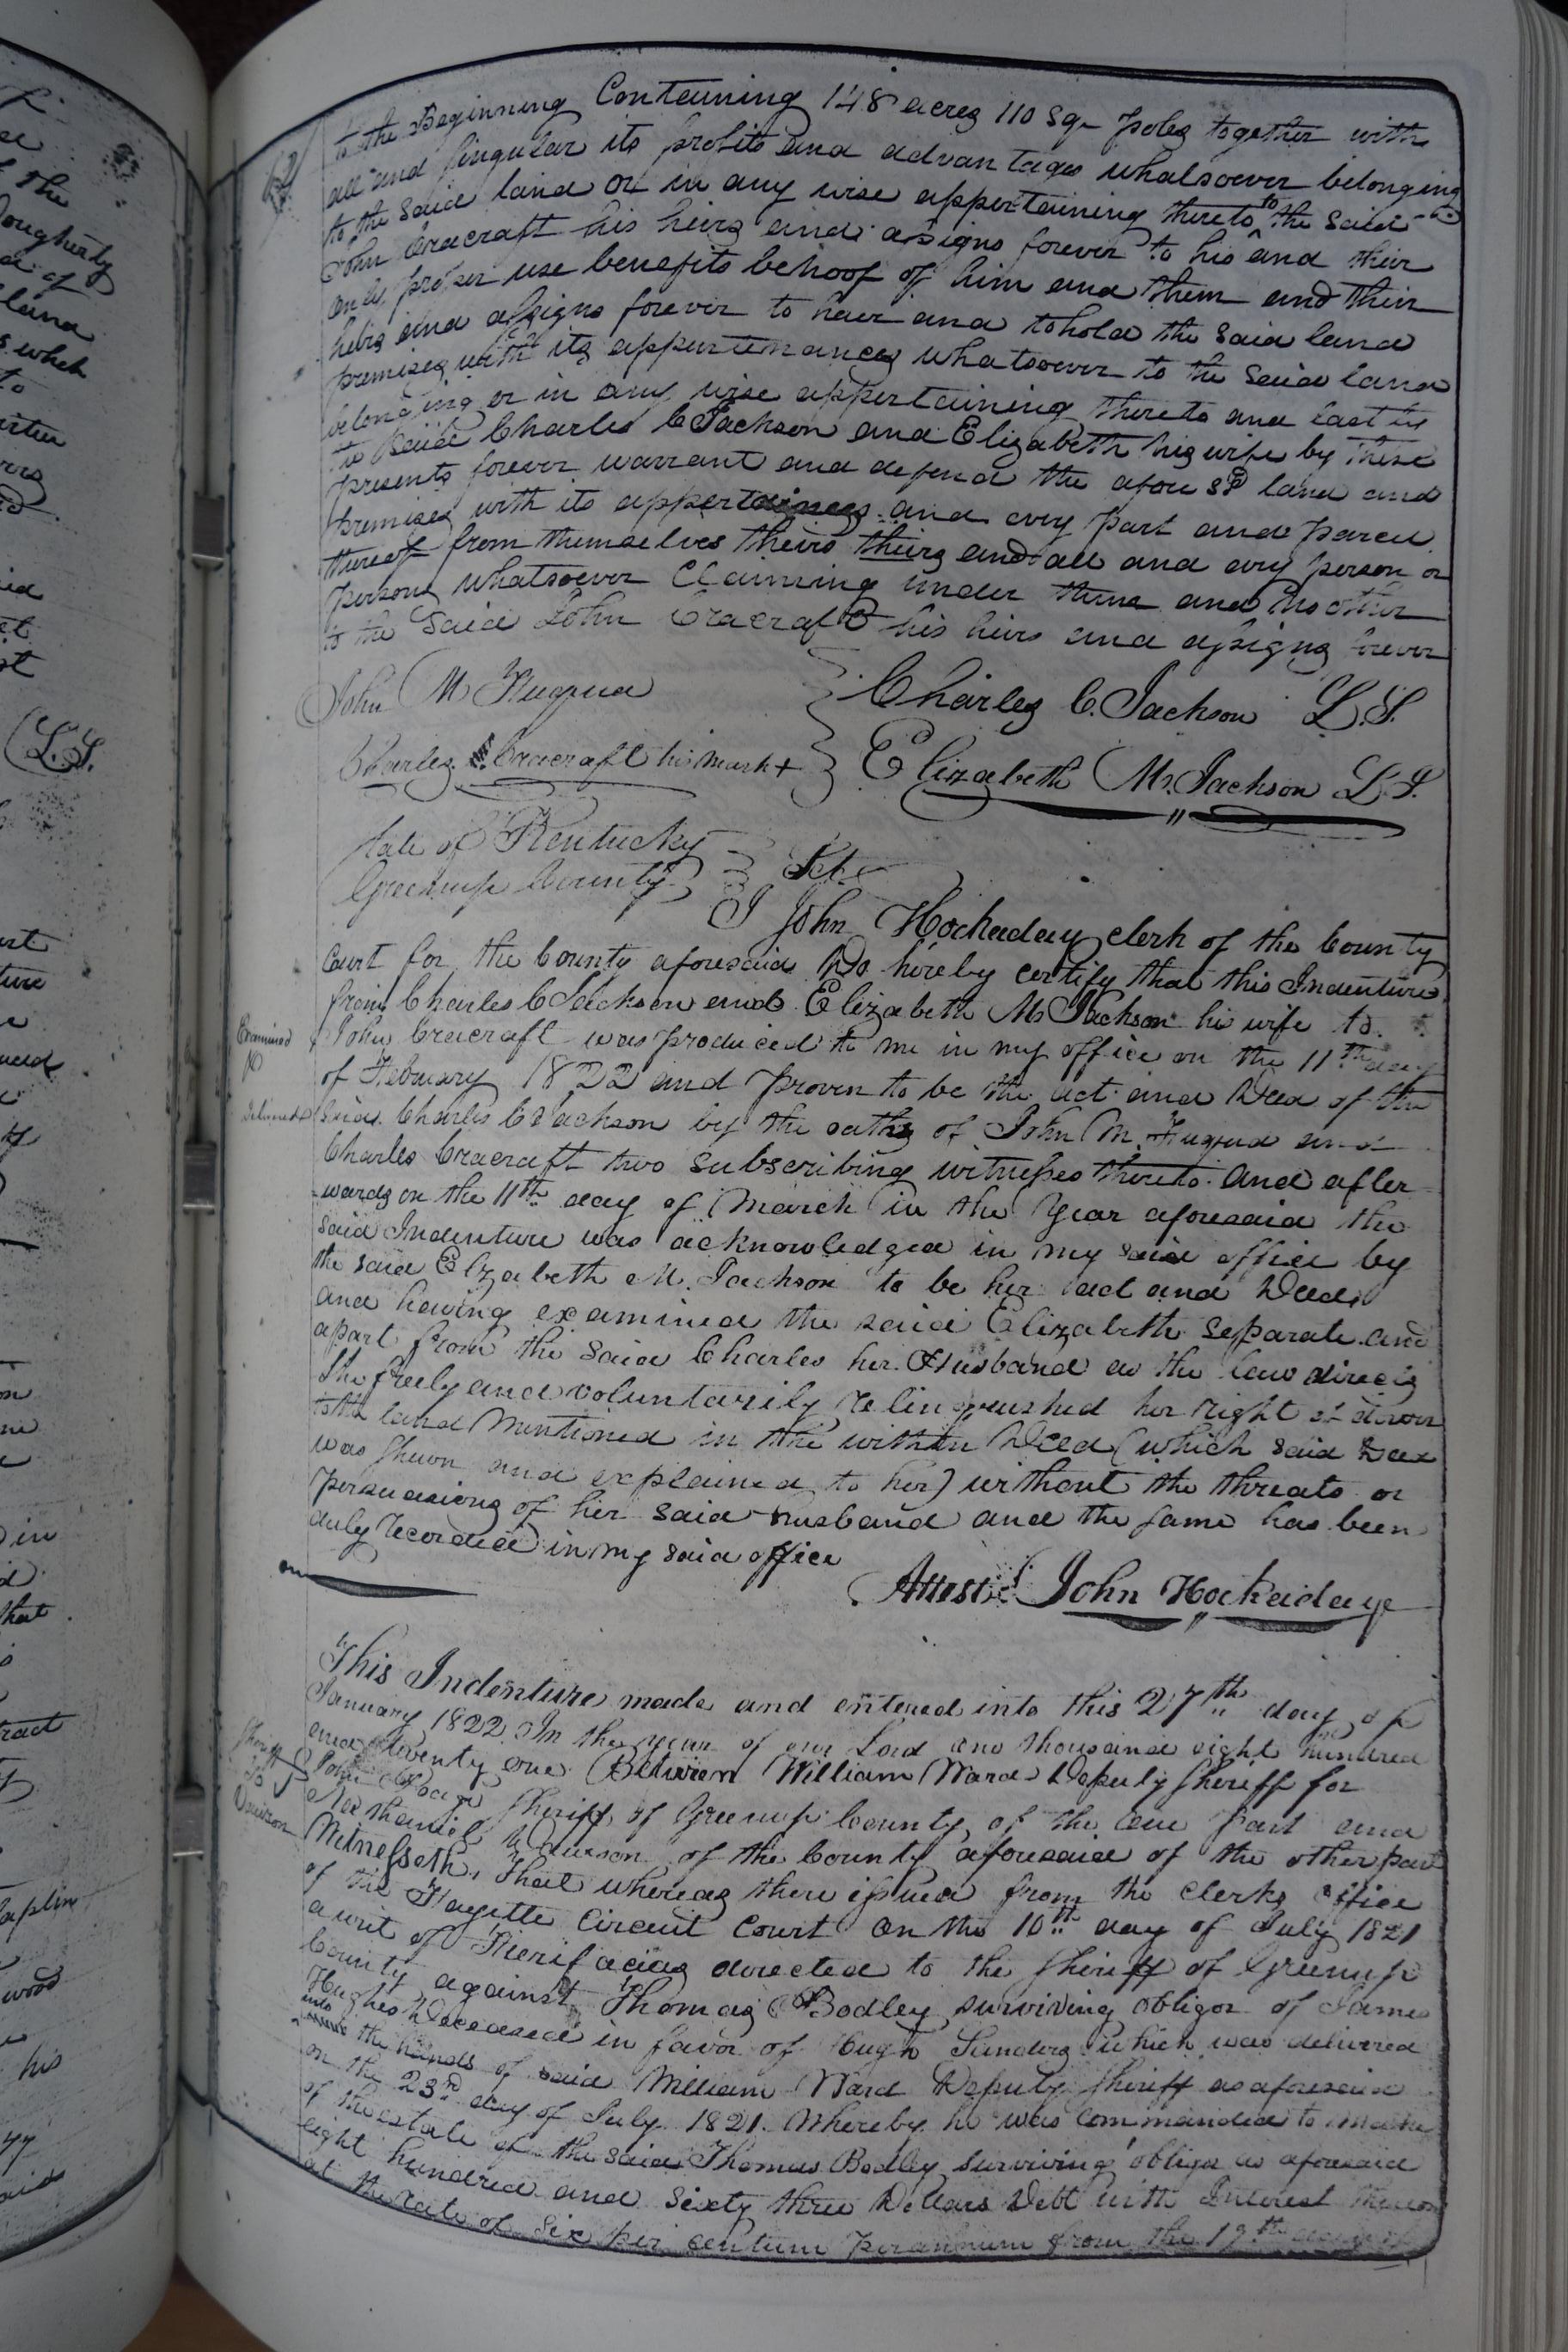 to the Beginning Containing 148 acres 110 Sqr poles together with
all and singular its profits and advantages whatsoever belonging
to the said land or in any wise appertaining thereto to the said
John Cracraft his heirs and assigns forever to his and their
only proper use benefits behoof of him and them and their
heirs and assigns forever to have and to hold the said land
premises with its appurtenances whatsoever to the said land
belonging or in any wise appertaining thereto and lastly
the said Charles C Jackson and Elizabeth his wife by these
presents forever warrant and defend the afore sd land and
premises with its and evry part and parcel
thereof from themselves theirs theirs and all and evry person or
persons whatsoever Claiming under them and no other
to the Said John Cracraft his heirs and assigns forever
John M Fuqua
Charles C. Jackson L.S.
Charles Cracraft his mark +
Elizabeth M. Jackson L.S.
State of Kentucky
Greenup County Sct
I John Hockaday clerk of the County
Court for the County aforesaid Do hereby certify that this Indenture
from Charles C Jackson and Elizabeth M Jackson his wife to
Examined
John Cracraft was produced to me in my office on the 11th day
of February 1822 and proven to be the act and Deed of the
said Charles C Jackson by the oaths of John M. Fuqua and
Charles Cracraft two subscribing witnesses thereto and after
wards on the 11th day of March in the Year aforesaid the
said Indenture was acknowledged in my said office by
the said Elizabeth M. Jackson to be her act and Deed
and having examined the said Elizabeth separate and
apart from the said Charles her Husband as the law directs
She freely and voluntarily relinquished her right of dower
to the land Mentioned in the within Deed (which said Deed
was shewn and explained to her) without the threats or
persuasions of her said husband and the same has been
duly recorded in my said office
Attest John Hockaday
This Indenture made and entered into this 27th day of
January 1822 In the year of our Lord one thousand eight hundred
and twenty one Between William Ward Deputy Sheriff for
Sheriff
To
John Sheriff of Greenup County of the one part and
of the County aforesaid of the other part
Witnesseth, That whereas there issued from the clerks office
of the Fayette Circuit Court on the 10th day of July 1821
a writ of Fierifacias directed to the Sheriff of Greenup
County against Thomas Bodley surviving obligor of James
Hughes Deceased in favor of Hugh Sanders which was delivered
into the hands of said William Ward Deputy Sheriff as aforesaid
on the 23rd day of July 1821. Whereby he was Commanded to make
of the estate of the said Thomas Bodley surviving obligor as aforesaid
eight hundred and sixty three Dollars Debt with Interest thereon
at the rate of Six per centum per annum from the 19th day of